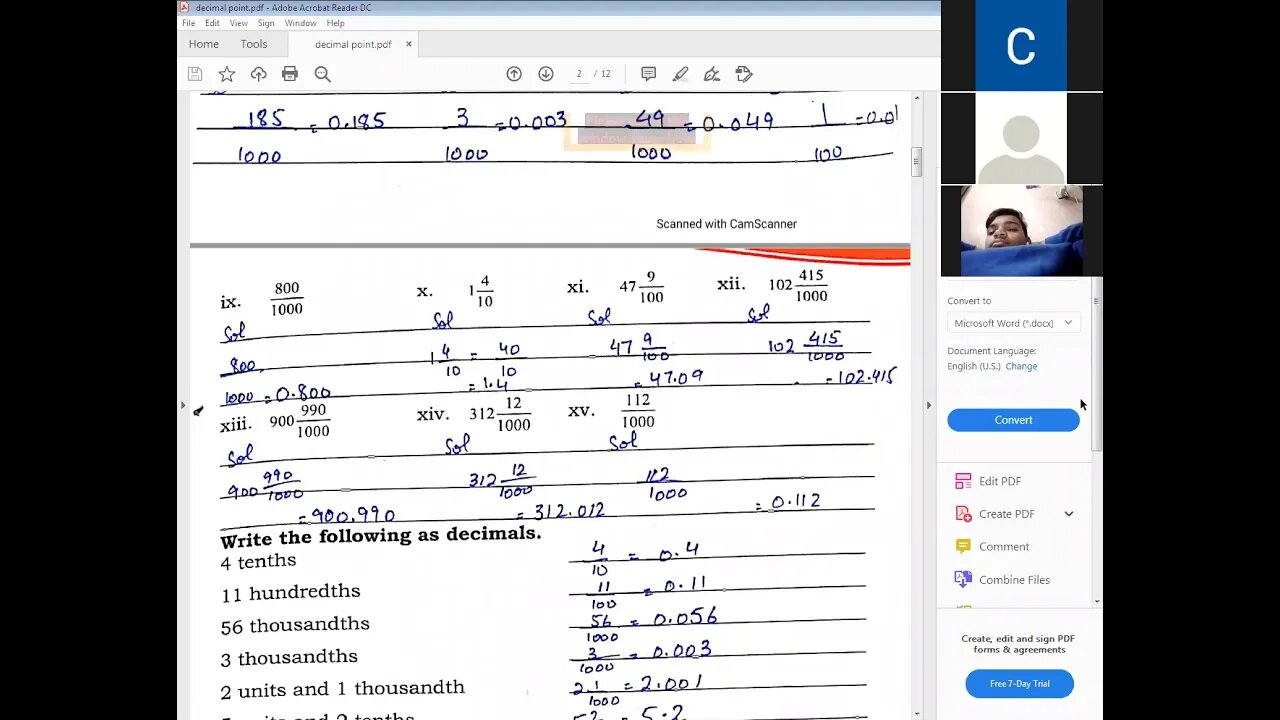 decimal point.pdf - Adobe Acrobat Reader DC
File Edit View Sign Window Help
Home Tools decimal point.pdf ×
2 / 12
185/1000 = 0.185 3/1000 = 0.003 49/1000 = 0.049 1/100 = 0.01
Scanned with CamScanner
ix. 800/1000 x. 1 4/10 xi. 47 9/100 xii. 102 415/1000
Sol Sol Sol Sol
800/1000 = 0.800 1 4/10 = 40/10 = 1.4 47 9/100 = 47.09 102 415/1000 = 102.415
xiii. 900 990/1000 xiv. 312 12/1000 xv. 112/1000
Sol Sol Sol
900 990/1000 = 900.990 312 12/1000 = 312.012 112/1000 = 0.112
Write the following as decimals.
4 tenths 4/10 = 0.4
11 hundredths 11/100 = 0.11
56 thousandths 56/1000 = 0.056
3 thousandths 3/1000 = 0.003
2 units and 1 thousandth 2 1/1000 = 2.001
= 5.2
C
Convert to
Microsoft Word (*.docx)
Document Language:
English (U.S.) Change
Convert
Edit PDF
Create PDF
Comment
Combine Files
Create, edit and sign PDF
forms & agreements
Free 7-Day Trial